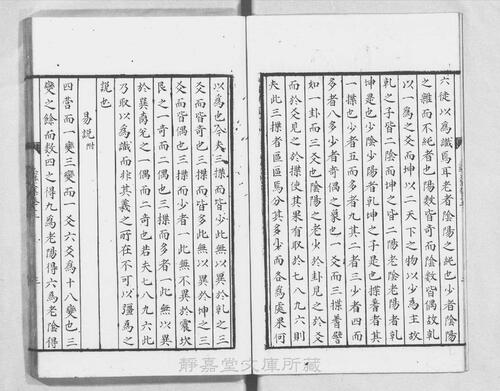 六徒以為識焉耳老者陰陽之純也少者陰陽
之雜而不純者也陽數皆奇而陰數皆偶故乾
以一為之爻而坤以二天下之物以少為主故
乾之子皆二陰而坤之子皆二陽老陰老陽者乾
坤是也少陰少陽者乾坤之子是也揲蓍者其
一揲也少者五而多者九其二者三少者四而
多者八多少者奇偶之象也一爻而三揲蓍譬
如一卦而三爻也陰陽之老少於卦見之於爻
而於爻見之於揲使其果有取於七八九六則
夫此三揲者區區焉分其多少而各為處果何
以為也今夫三揲而皆少此無以異於乾之三
爻而皆奇也三揲而皆多此無以異於坤之三
爻而皆偶也三揲而少者一此無不異於震坎
艮之一奇而二偶也三揲而多者一此無以異
於巽离兌之一偶而二奇也若夫七八九六此
乃取以為識而非其義之所在不可以彊為之
說也
易說附
四營而一變三變而一爻六爻為十八變也三
變之餘而數四之得九為老陽得六為老陰得
靜嘉堂文庫所藏